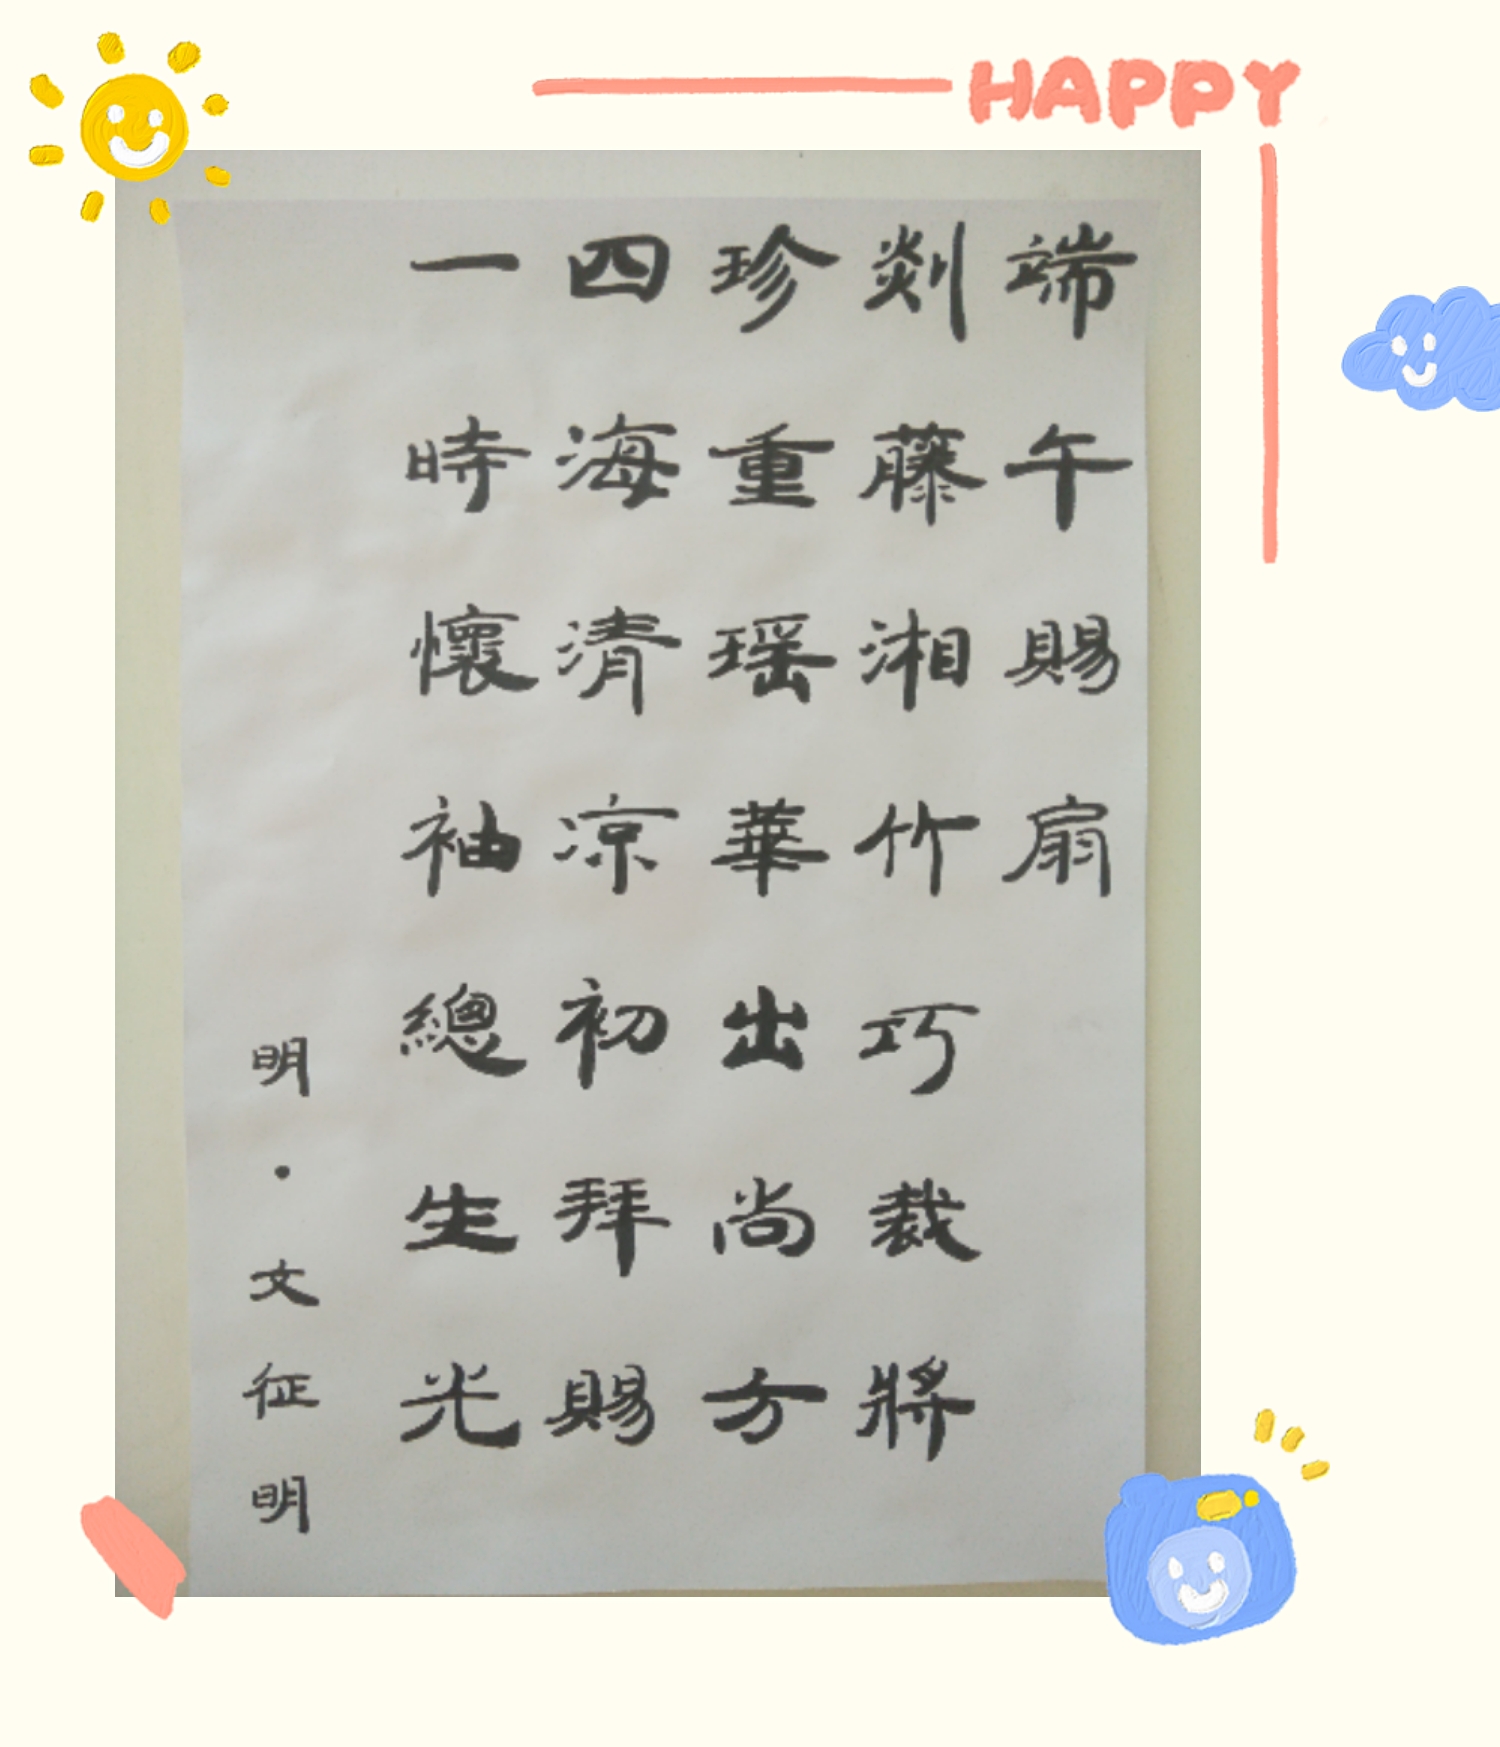 HAPPY
端午賜扇
剡藤湘竹巧裁將
珍重瑶華出尚方
四海清凉初拜賜
一時懷袖總生光
明·文征明